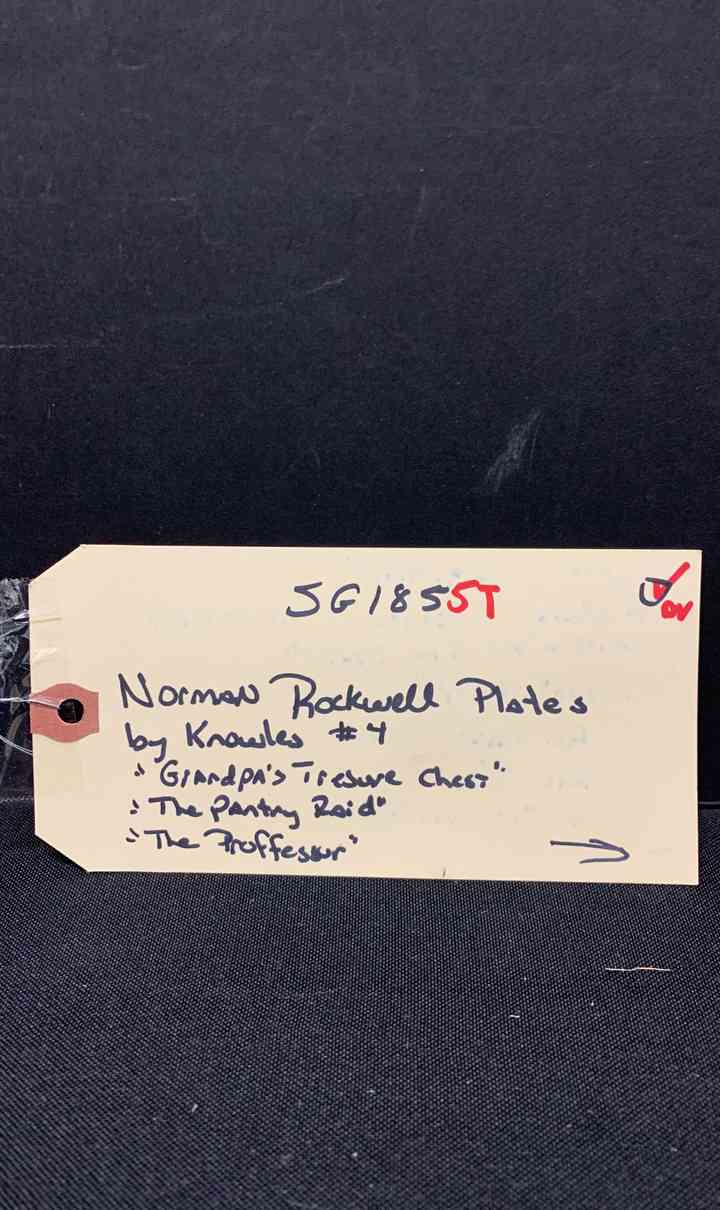 SG1855T
Norman Rockwell Plates
by Knowles #4
"Grandpa's Tresure Chest"
"The Pantry Raid"
"The Proffessur"